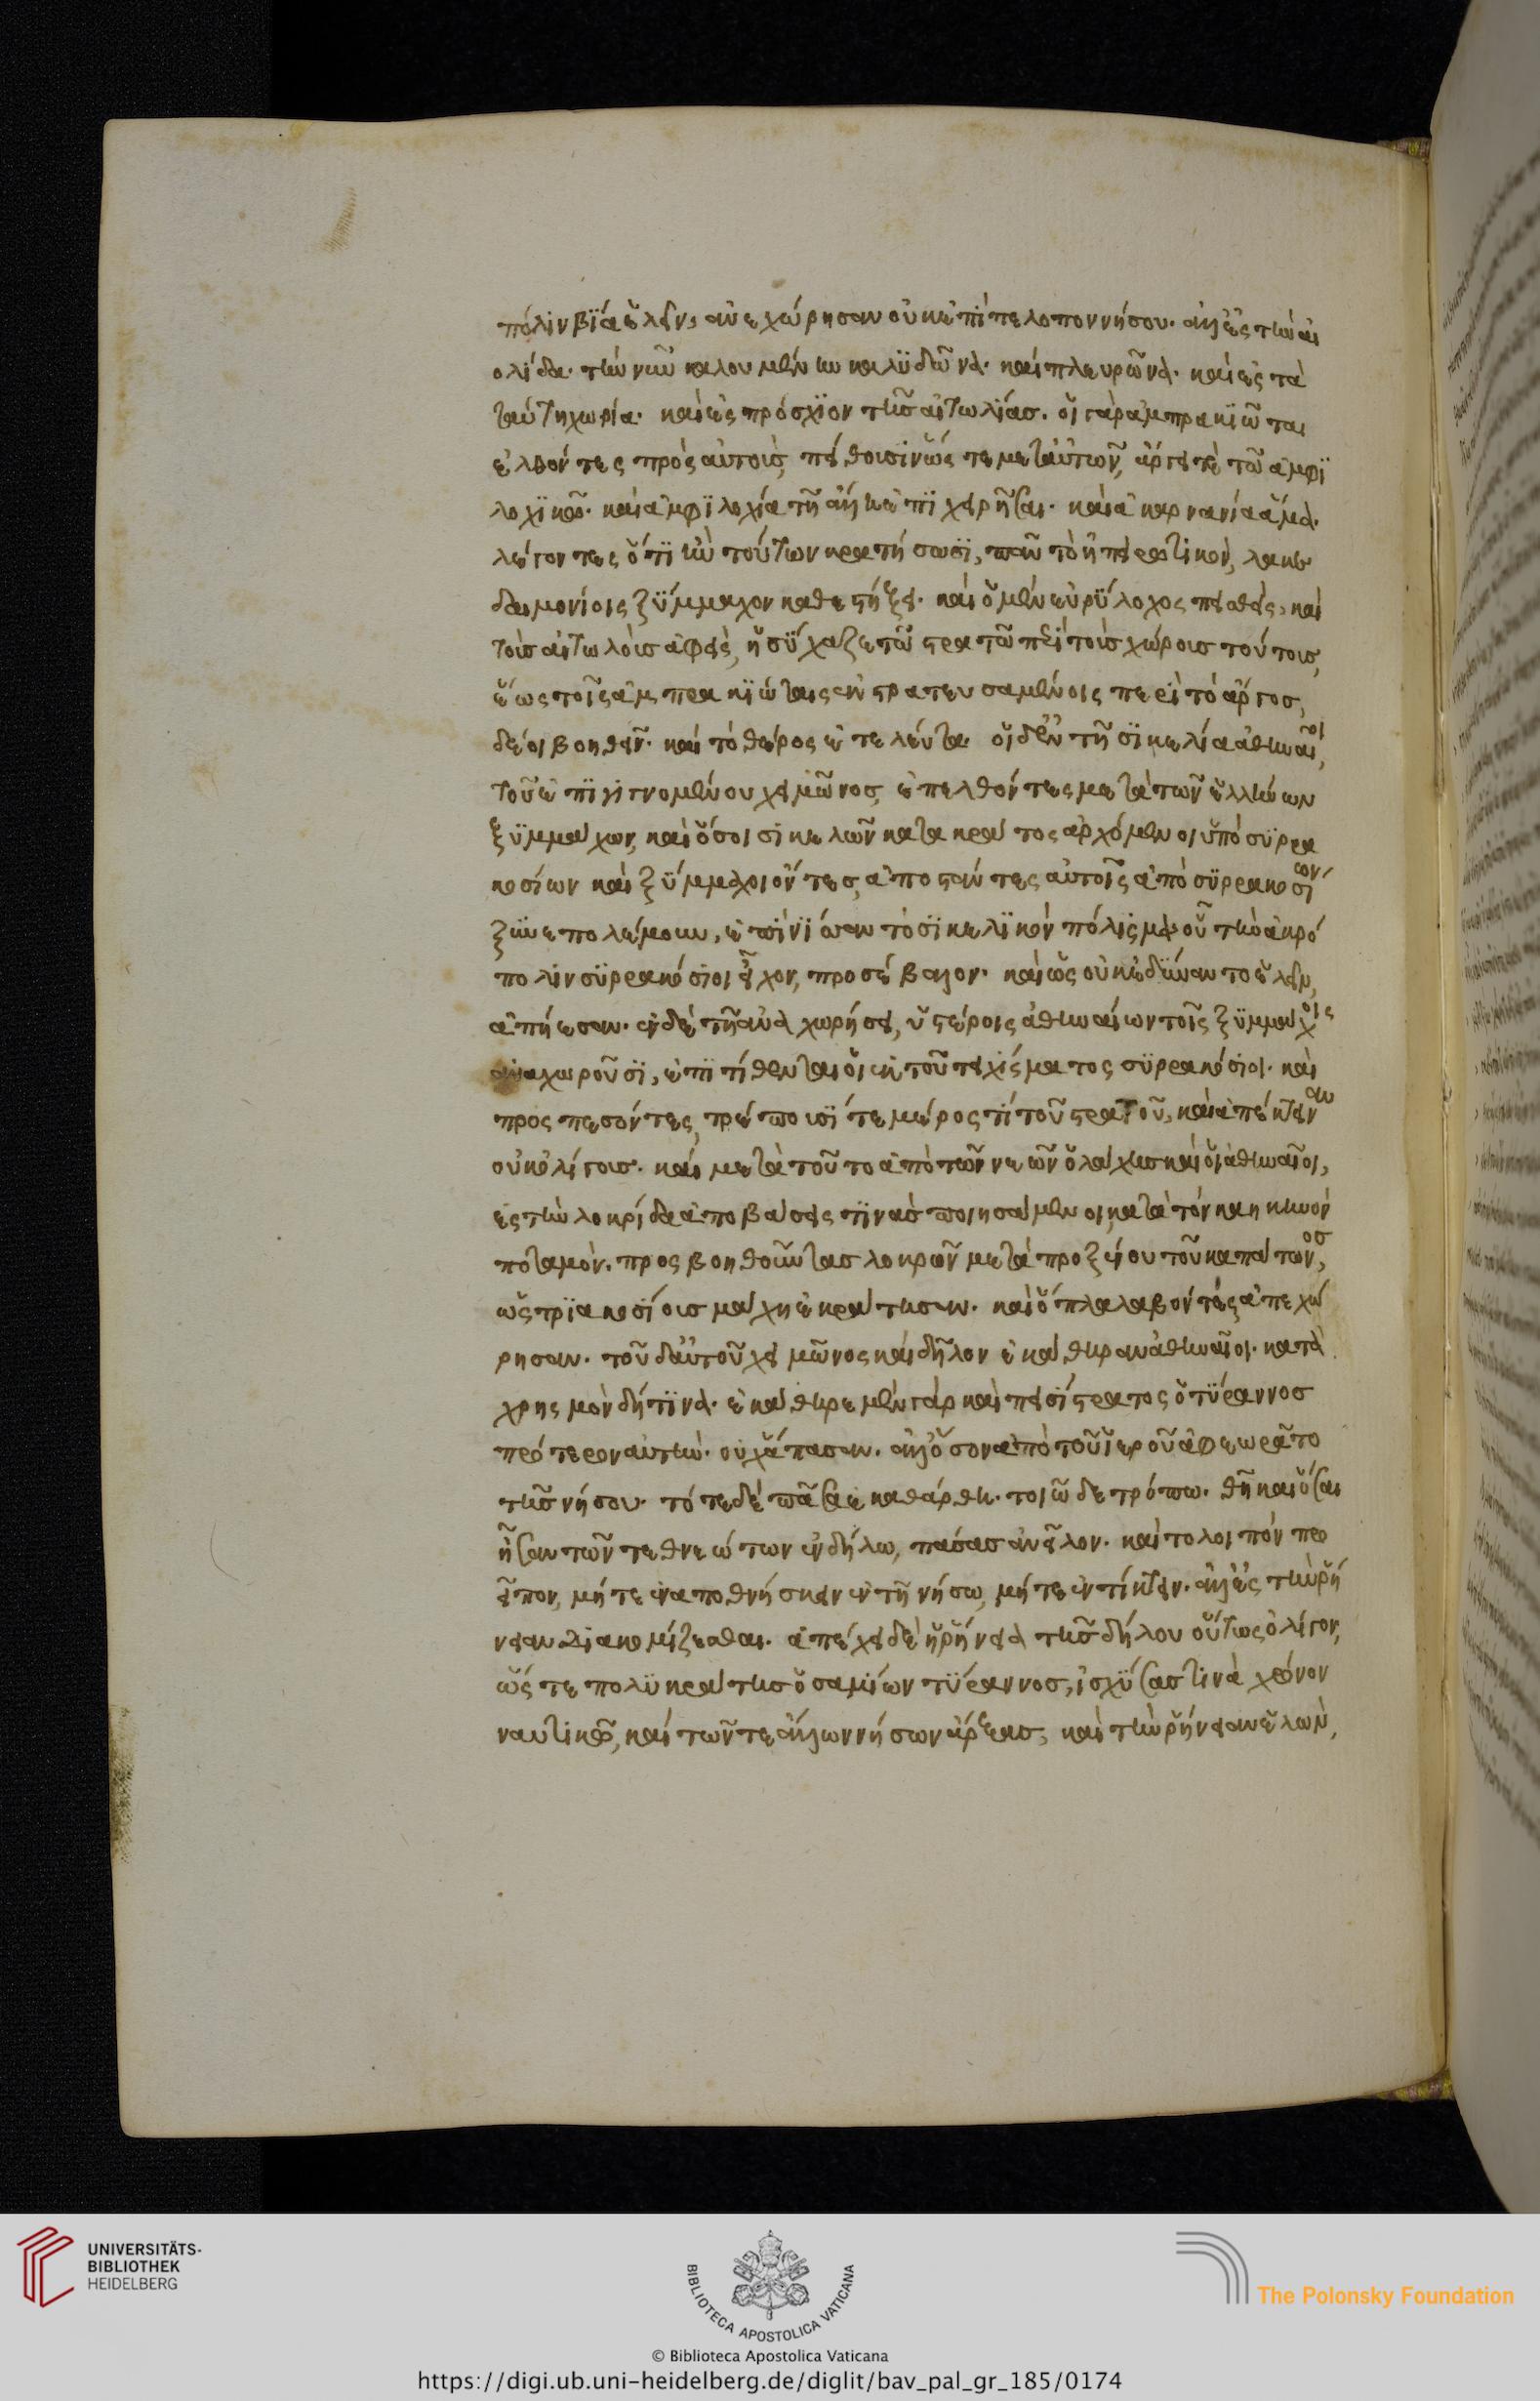 πόλιν βία ἑλεῖν, ἀνεχώρησαν οὐκ ἐπὶ πελοποννήσου. ἀλλ' ἐς τὴν αἰ
ολίδα τὴν νῦν καλουμένην καλυδῶνα. καὶ πλευρῶνα. καὶ ἐς τὰ
ταύτη χωρία. καὶ ἐς πρόσχιον τῆς αἰτωλίας. οἱ γὰρ ἀμπρακιῶται
ἐλθόντες πρὸς αὐτοὺς, πείθουσιν ὥστε μετ' αὐτῶν, ἄργει τὲ τῶ ἀμφι
λοχικῶ. καὶ ἀμφιλοχία τῆ ἄλλη ἐπιχειρῆσαι. καὶ ἀκαρνανία ἅμα.
λέγοντες ὅτι ἢν τούτων κρατήσωσι, πᾶν τὸ ἠπειρωτικὸν, λακε
δαιμονίοις ξύμμαχον καθεστήξει. καὶ ὁ μὲν εὐρύλοχος πεισθεὶς, καὶ
τοὺς αἰτωλοὺς ἀφεὶς, ἡσύχαζε τῶ στρατῶ περὶ τοὺς χώρους τούτους,
ἕως τοῖς ἀμπρακιώταις ἐκστρατευσαμένοις περὶ τὸ ἄργος,
δέοι βοηθεῖν. καὶ τὸ θέρος ἐτελεύτα. οἱ δ' ἐν τῆ σικελία ἀθηναῖοι,
τοῦ ἐπιγιγνομένου χειμῶνος, ἐπελθόντες μετὰ τῶν ἑλλήνων
ξυμμάχων, καὶ ὅσοι σικελῶν κατὰ κράτος ἀρχόμενοι ὑπὸ συρα
κοσίων καὶ ξύμμαχοι ὄντες, ἀποστάντες αὐτοῖς ἀπὸ συρακοσίων
ξυνεπολέμουν, ἐπ' ἴνησσαν τὸ σικελικὸν πόλισμα οὗ τὴν ἀκρό
πολιν συρακόσιοι εἶχον, προσέβαλον. καὶ ὡς οὐκ ἐδύναντο ἑλεῖν,
ἀπήεσαν. ἐν δὲ τῆ ἀναχωρήσει, ὑστέροις ἀθηναίων τοῖς ξυμμάχοις
ἀναχωροῦσι, ἐπιτίθενται οἱ ἐκ τοῦ τειχίσματος συρακόσιοι. καὶ
προσπεσόντες, τρέπουσί τε μέρος τὶ τοῦ στρατοῦ, καὶ ἀπέκτειναν
οὐκ ὀλίγους. καὶ μετὰ τοῦτο ἀπὸ τῶν νεῶν ὁ λάχης καὶ οἱ ἀθηναῖοι,
ἐς τὴν λοκρίδα ἀποβάσεις τινὰς ποιησάμενοι, κατὰ τὸν καηκινὸν
ποταμὸν. προσβοηθοῦντας λοκρῶν μετὰ προξένου τοῦ καπάτωνος,
ὡς τριακοσίους μάχη ἐκράτησαν. καὶ ὅπλα λαβόντες ἀπεχώ
ρησαν. τοῦ δ' αὐτοῦ χειμῶνος καὶ δῆλον ἐκάθηραν ἀθηναῖοι. κατὰ
χρησμὸν δή τινα. ἐκάθηρε μὲν γὰρ καὶ πεισίστρατος ὁ τύραννος
πρότερον αὐτὴν. οὐχ ἅπασαν. ἀλλ' ὅσον ἀπὸ τοῦ ἱεροῦ ἀφεωρᾶτο
τῆς νήσου. τότε δὲ πᾶσα ἐκαθάρθη. τοιῶδε τρόπω. θῆκαι ὅσαι
ἦσαν τῶν τεθνεώτων ἐν δήλω, πάσας ἀνεῖλον. καὶ τολοιπὸν προ
εῖπον, μήτε ἐναποθνήσκειν ἐν τῆ νήσω, μήτε ἐντίκτειν. ἀλλ' ἐς τὴν ῥή
νειαν διακομίζεσθαι. ἀπέχει δὲ ἡ ῥήνεια τῆς δήλου οὕτως ὀλίγον,
ὥστε πολυκράτης ὁ σαμίων τύραννος, ἰσχύσας τινὰ χρόνον
ναυτικῶ, καὶ τῶν τε ἄλλων νήσων ἄρξας, καὶ τὴν ῥήνειαν ἑλὼν,
UNIVERSITÄTS-
BIBLIOTHEK
HEIDELBERG
BIBLIOTECA APOSTOLICA VATICANA
The Polonsky Foundation
© Biblioteca Apostolica Vaticana
https://digi.ub.uni-heidelberg.de/diglit/bav_pal_gr_185/0174